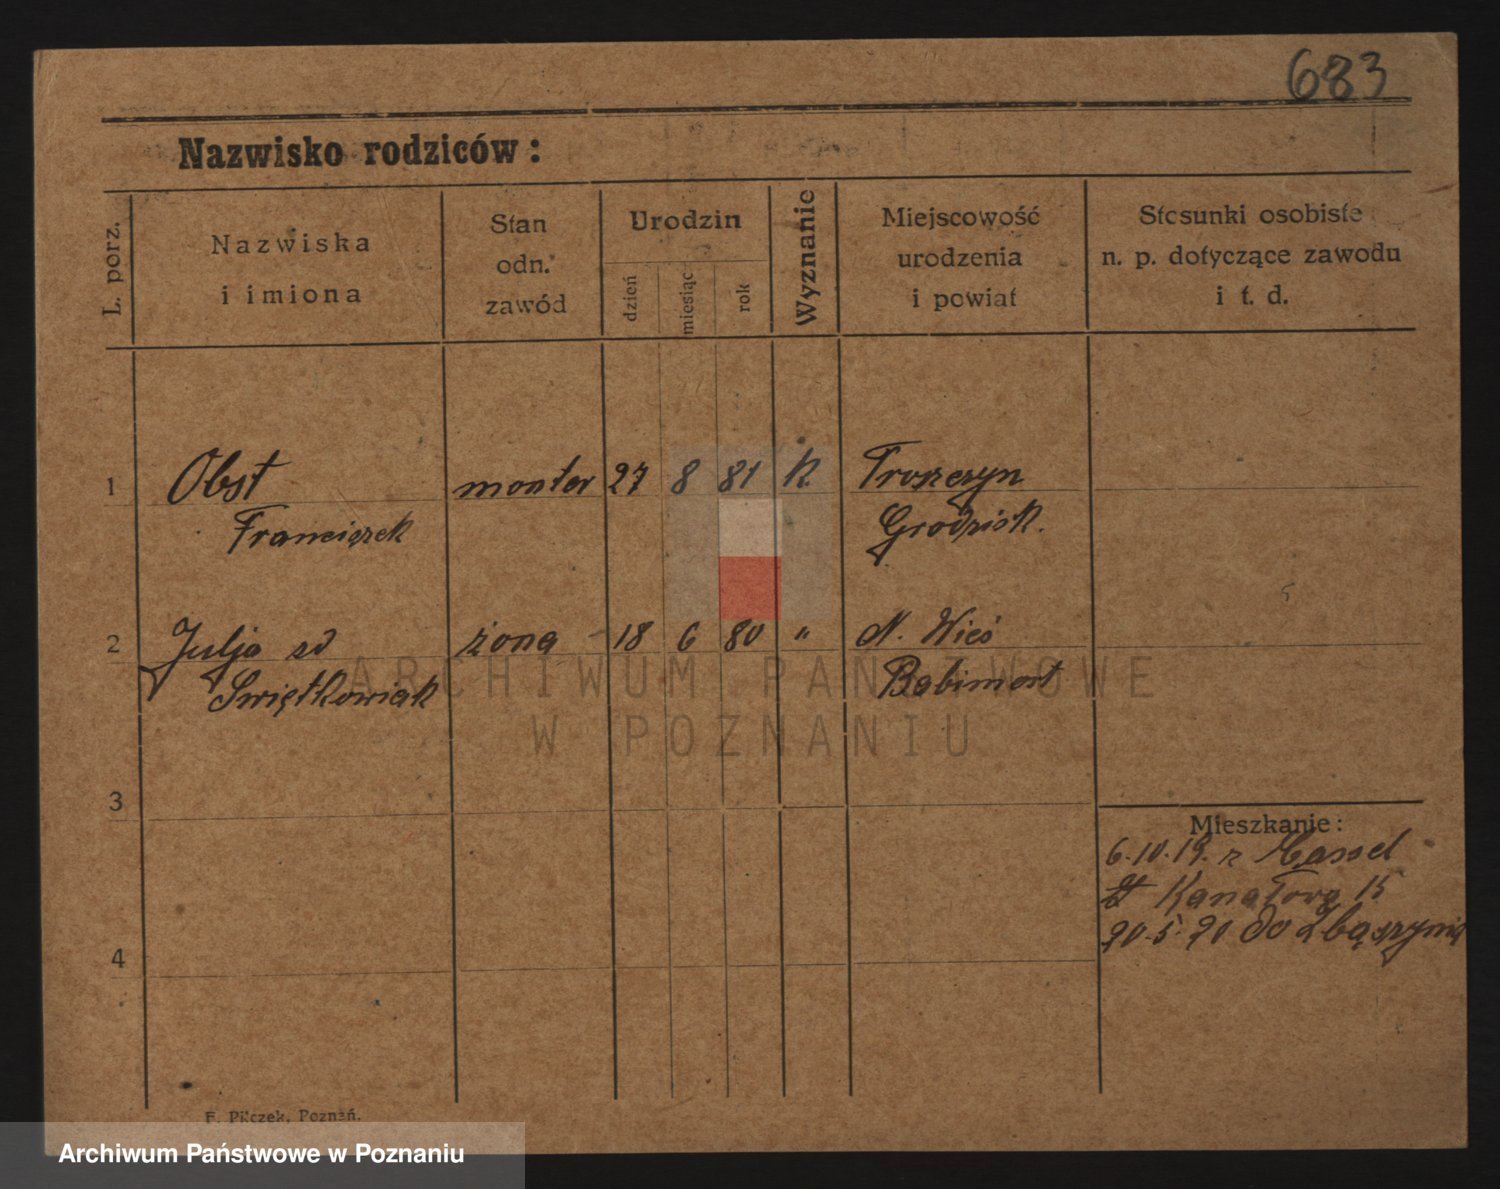 683
Nazwisko rodziców:
L. porz.
Nazwiska
i imiona
Stan
odn.
zawód
Urodzin
dzień
miesiąc
rok
Wyznanie
Miejscowość
urodzenia
i powiat
Stosunki osobiste
n. p. dotyczące zawodu
i t. d.
1 Obst monter 27 8 81 k.
Franciszek
Grodzisk.
2 Julja żona 18 6 80 " N. Wieś
Swiętkowiak Babimost
ARCHIWUM PAŃSTWOWE
W POZNANIU
3
Mieszkanie:
6.10.19. z Cassel
Kanałowa 15
20.5.20 do Zbąszynia
4
F. Pilczek, Poznań.
Archiwum Państwowe w Poznaniu